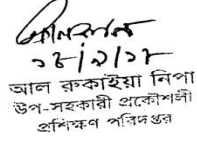 ১৮/৯/১৮
আল রুকাইয়া নিপা
উপ-সহকারী প্রকৌশলী
প্রশিক্ষণ পরিদপ্তর